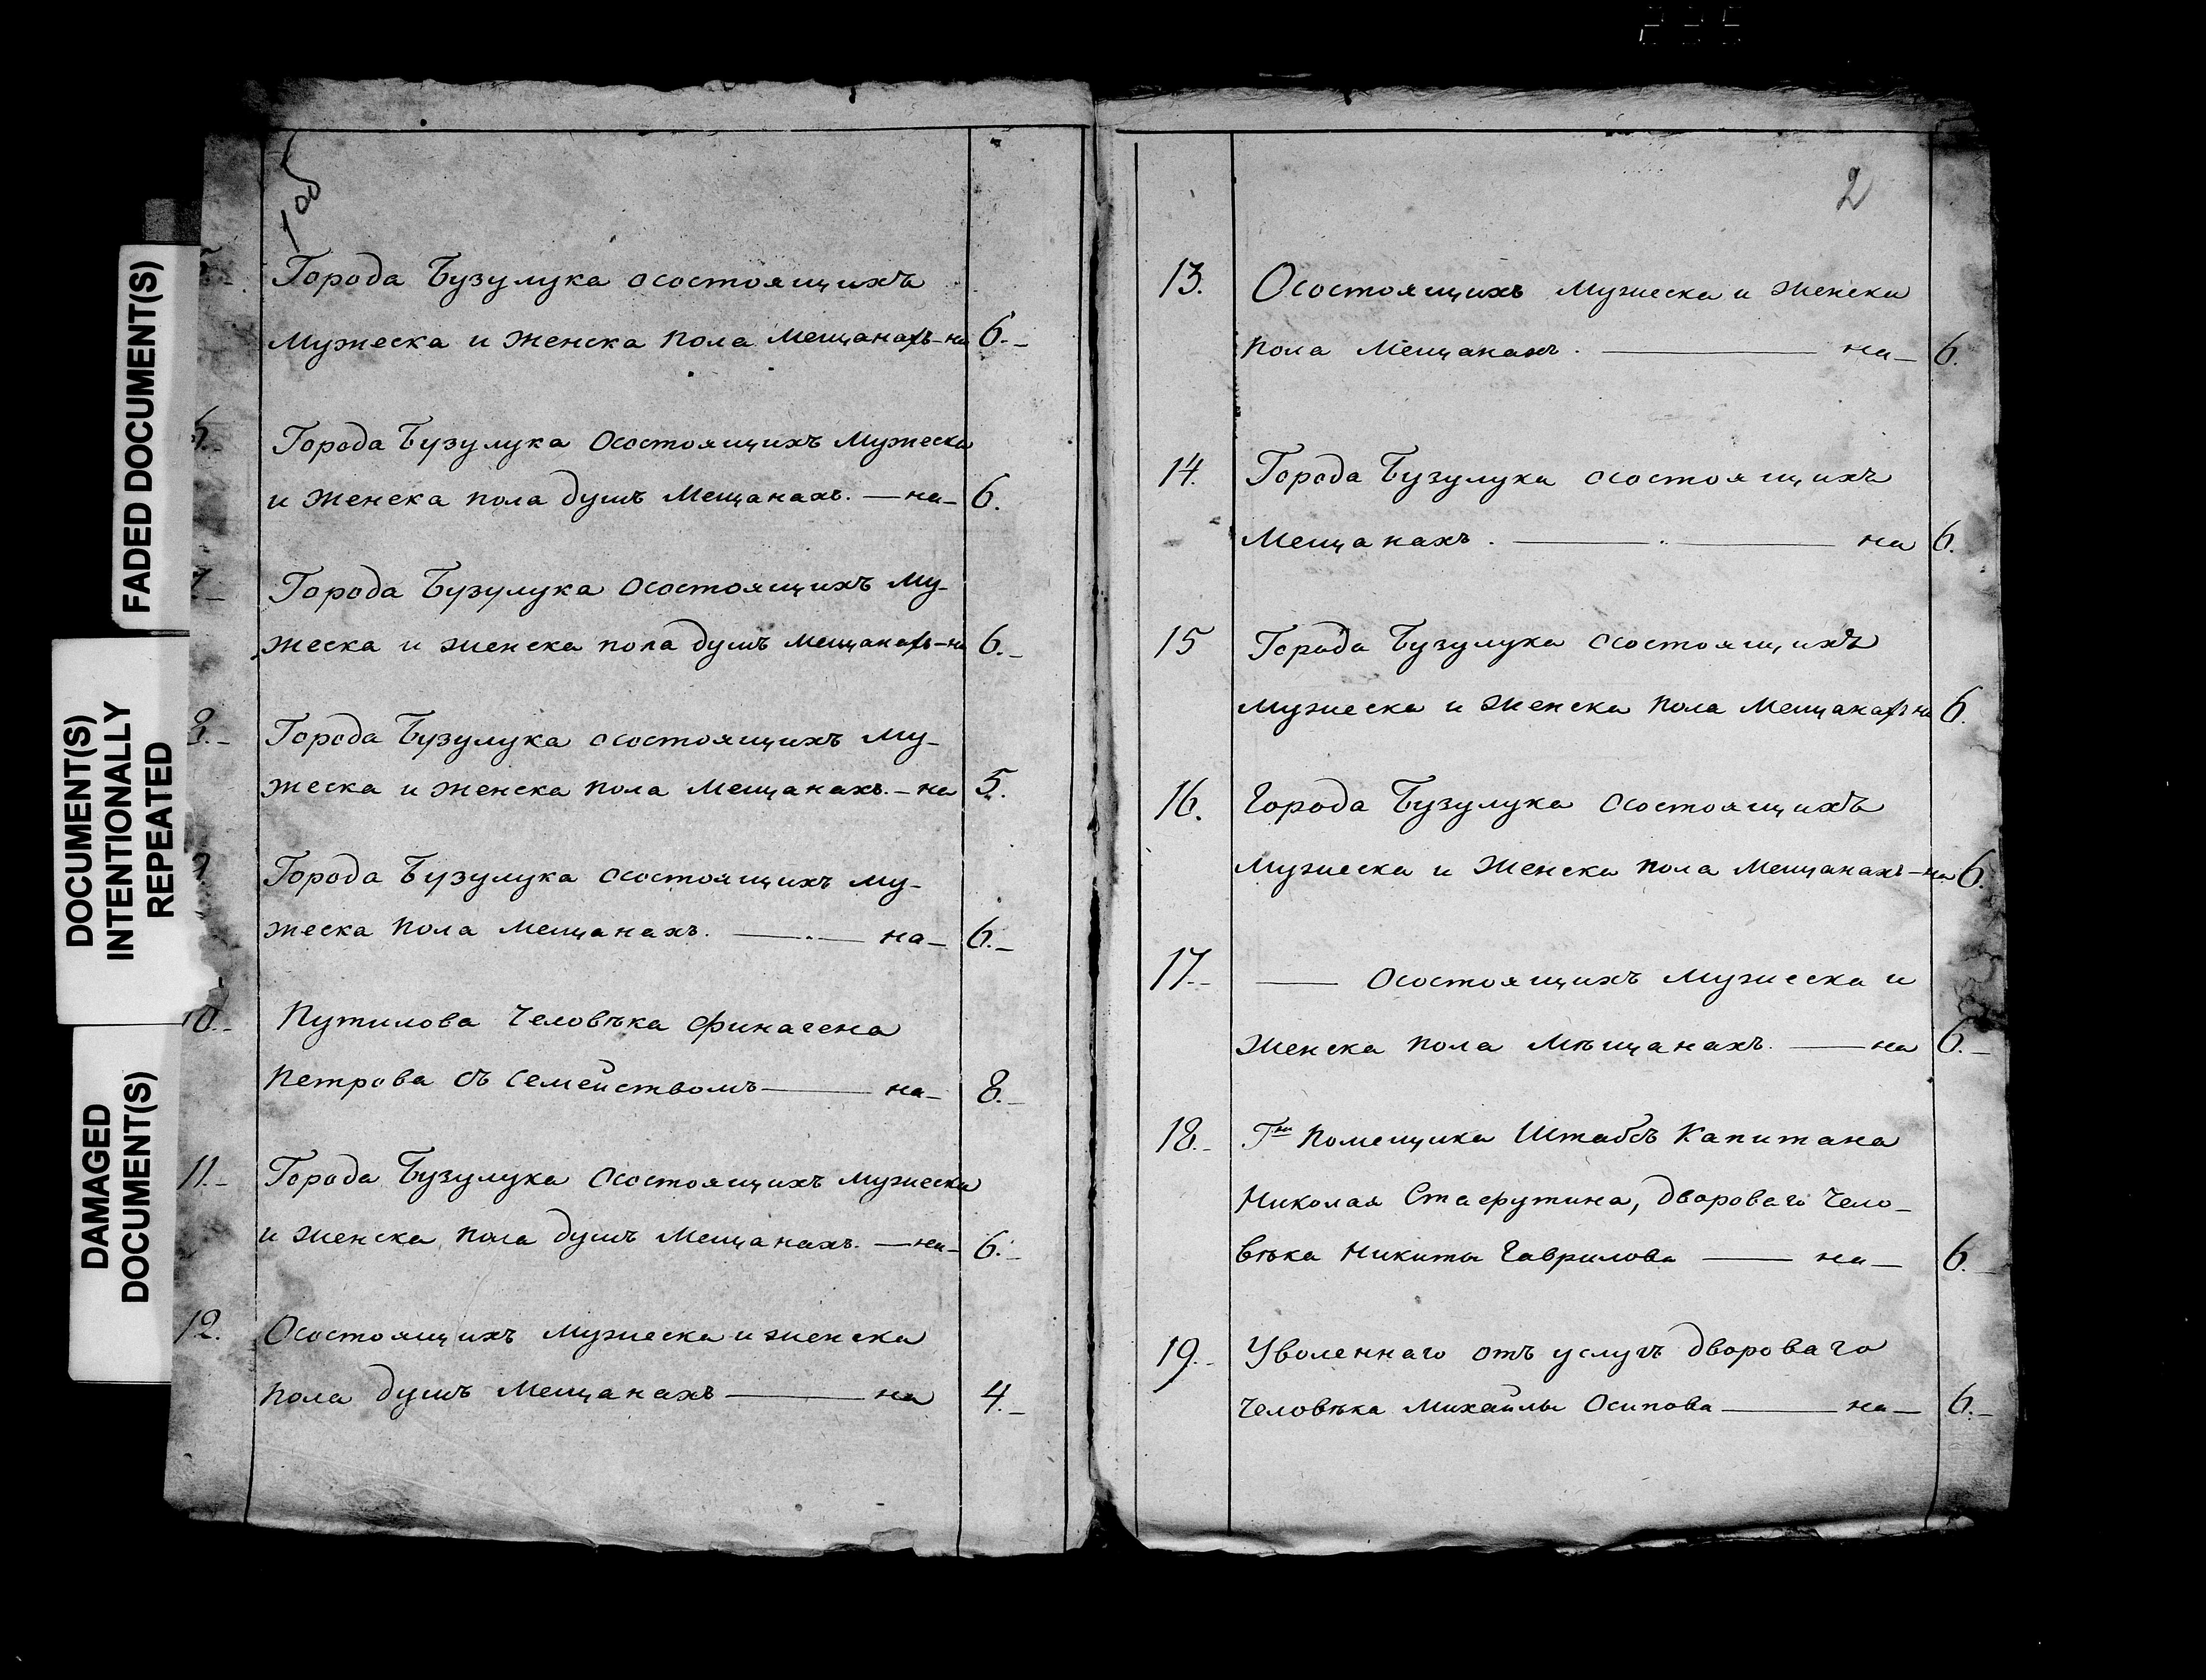 FADED DOCUMENT(S)
DOCUMENT(S)
INTENTIONALLY
REPEATED
DAMAGED
DOCUMENT(S)
1 об
Города Бузулука осостоящихъ
Мужеска и Женска пола Мещанахъ – на 6.–
Города Бузулука Осостоящихъ Мужеска
и Женска пола душъ Мещанахъ. — на – 6.
Города Бузулука Осостоящихъ Му-
жеска и женска пола душъ мещанахъ – на 6.–
8.– Города Бузулука осостоящихъ Му-
жеска и женска пола Мещанахъ. – на 5.
9. Города Бузулука осостоящихъ Му-
жеска пола Мещанахъ. —.— на – 6.–
10.– Путилова человѣка
Петрова съ семействомъ — на – 8.–
11.– Города Бузулука Осостоящихъ мужеска
и женска пола душъ Мещанахъ. — на – 6.–
12. Осостоящихъ мужеска и женска
пола душъ Мещанахъ — на 4.–
2
13. Осостоящихъ Мужеска и Женска
пола Мещанахъ. — на – 6.
14. Города Бузулука осостоящихъ
Мещанахъ. — . — на 6.
15 Города Бузулука осостоящихъ
Мужеска и Женска пола Мещанахъ на 6.
16. Города Бузулука осостоящихъ
Мужеска и Женска пола Мещанахъ – на 6.
17.– — Осостоящихъ Мужеска и
Женска пола Мѣщанахъ. — на 6.–
18.– Гна Помещика Штабсъ Капитана
Николая Стаерутина, двороваго чело-
вѣка Никиты Гаврилова — на — 6.–
19.– Уволеннаго отъ услугъ двороваго
человѣка Михайлы Осипова — на – 6.–